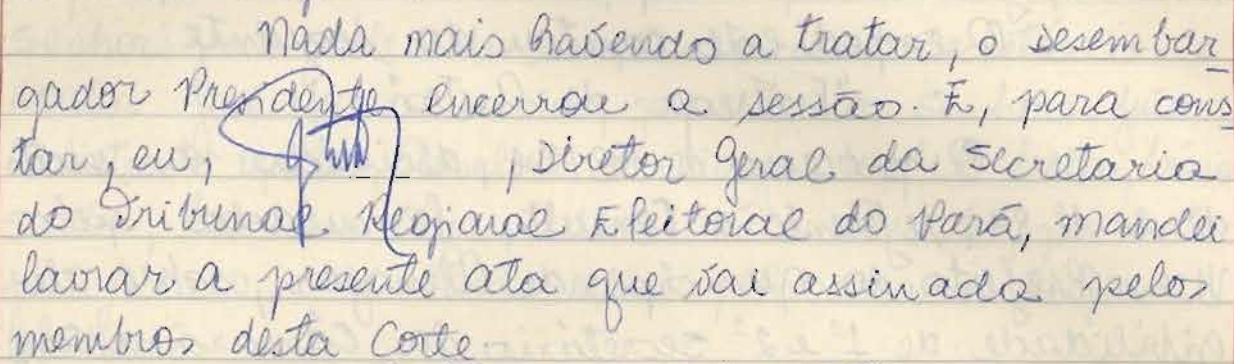 Nada mais havendo a tratar, o Desembar
gador Presidente encerrou a sessão. E, para cons
tar, eu, , Diretor Geral da Secretaria
do Tribunal Regional Eleitoral do Pará, mandei
lavrar a presente ata que vai assinada pelos
membros desta Corte.